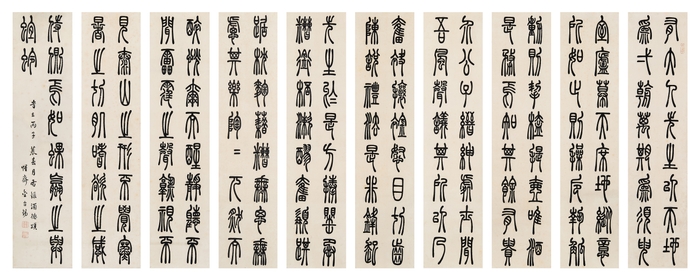 有大人先生以天地
為一朝萬期為須臾
室廬幕天席地縱意
所如止則操卮執觚
動則挈榼提壺唯酒
是務焉知其餘有貴
介公子搢紳處士聞
吾風聲議其所以乃
奮袂攘襟怒目切齒
陳說禮法是非鋒起
先生於是方捧甖承
槽銜杯漱醪奮髯踑
踞枕麴藉糟無思無
慮其樂陶=兀然而
醉爾而醒靜聽不
聞雷霆之聲視不
見泰山之形不覺寒
暑之切肌嗜欲之感
侍側焉如蜾蠃之與
螟蛉
丙子